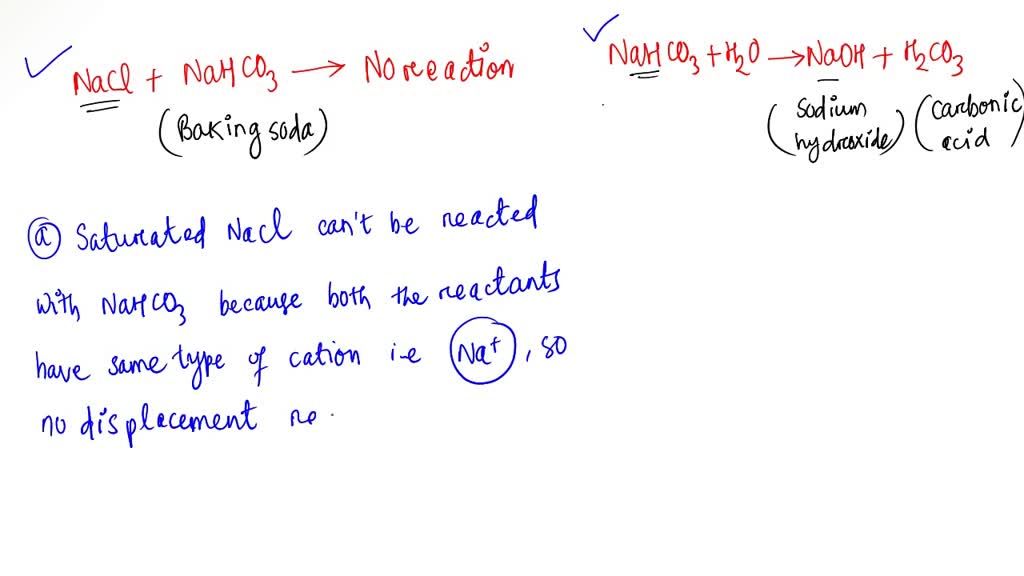 NaCl + NaHCO3 → No reaction
(Baking soda)
NaHCO3 + H2O → NaOH + H2CO3
(Sodium hydroxide) (Carbonic acid)
(a) Saturated NaCl can't be reacted
with NaHCO3 because both the reactants
have same type of cation i.e Na+, so
no displacement re